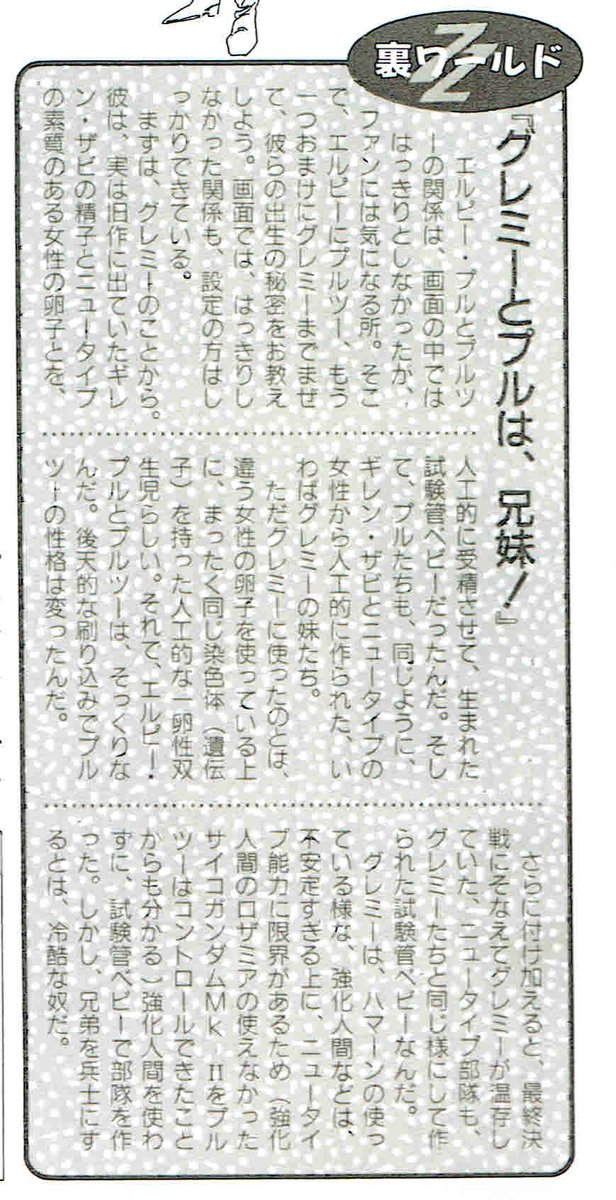 裏ワールド
ZZ
『グレミーとプルは、兄妹！』
エルピー・プルとプルツ
ーの関係は、画面の中では
はっきりとしなかったが、
ファンには気になる所。そこ
で、エルピーにプルツー、もう
一つおまけにグレミーまでまぜ
て、彼らの出生の秘密をお教え
しよう。画面では、はっきりし
なかった関係も、設定の方はし
っかりできている。
まずは、グレミーのことから。
彼は、実は旧作に出ていたギレ
ン・ザビの精子とニュータイプ
の素質のある女性の卵子とを、
人工的に受精させて、生まれた
試験管ベビーだったんだ。そし
て、プルたちも、同じように、
ギレン・ザビとニュータイプの
女性から人工的に作られた、い
わばグレミーの妹たち。
ただグレミーに使ったのとは、
違う女性の卵子を使っている上
に、まったく同じ染色体（遺伝
子）を持った人工的な一卵性双
生児らしい。それで、エルピー・
プルとプルツーは、そっくりな
んだ。後天的な刷り込みでプル
ツーの性格は変ったんだ。
さらに付け加えると、最終決
戦にそなえてグレミーが温存し
ていた、ニュータイプ部隊も、
グレミーたちと同じ様にして作
られた試験管ベビーなんだ。
グレミーは、ハマーンの使っ
ている様な、強化人間などは、
不安定すぎる上に、ニュータイ
プ能力に限界があるため（強化
人間のロザミアの使えなかった
サイコガンダムMk-IIをプル
ツーはコントロールできたこと
からも分かる）強化人間を使わ
ずに、試験管ベビーで部隊を作
った。しかし、兄弟を兵士にす
るとは、冷酷な奴だ。